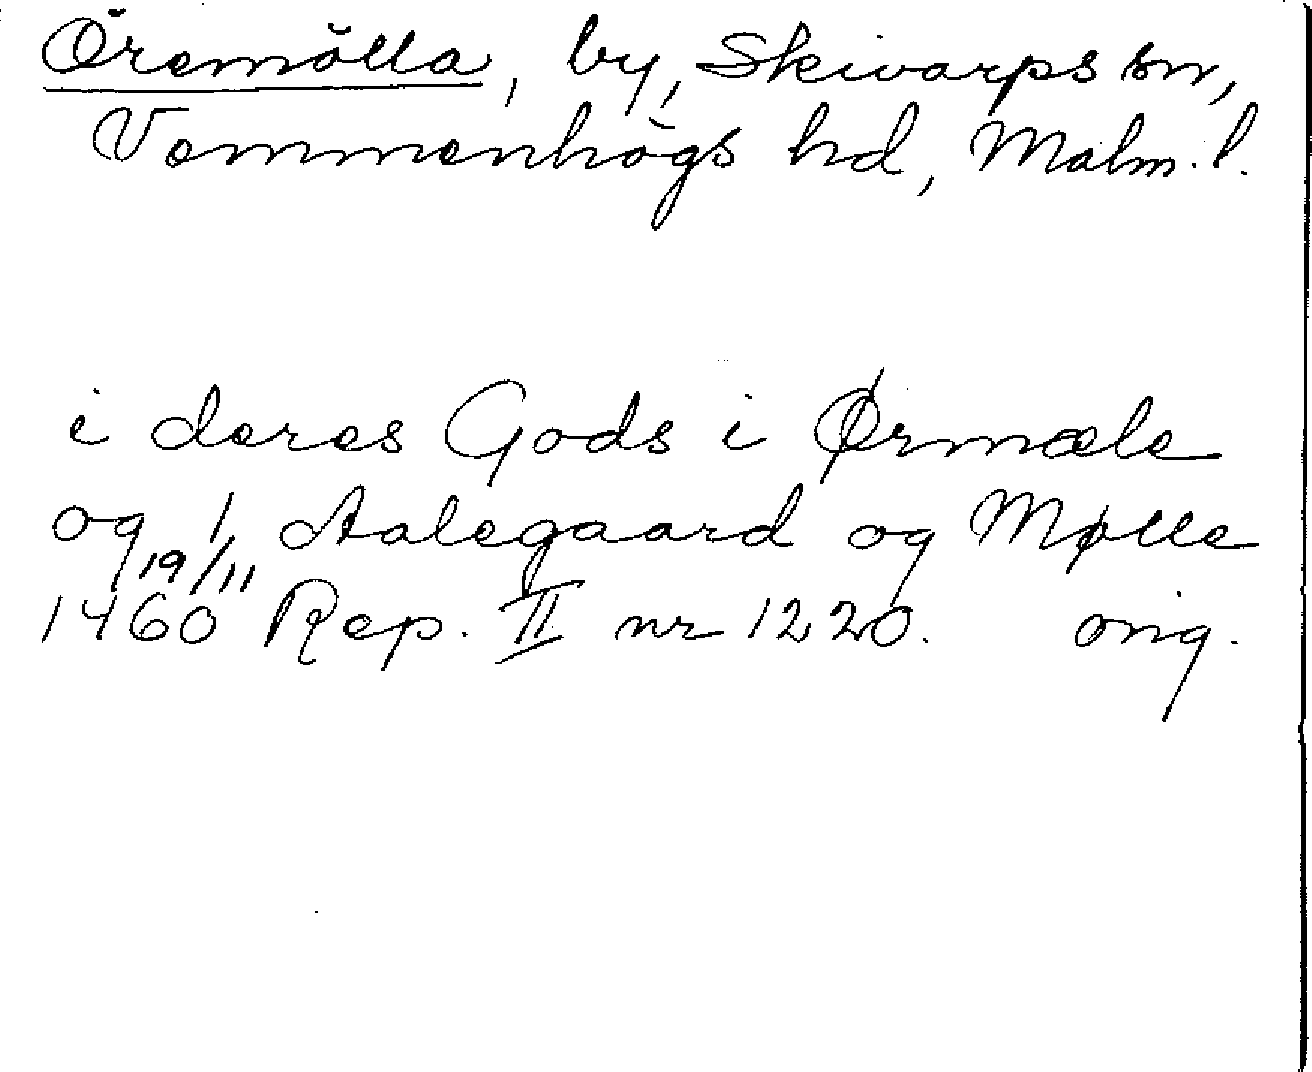 Öremölla, by, Skivarps sn,
Vemmenhögs hd, Malm. l.
i deres Gods i Ørmæle
og 1 Aalegaard og Mølle
19/11 1460 Rep. II nr 1220. orig.